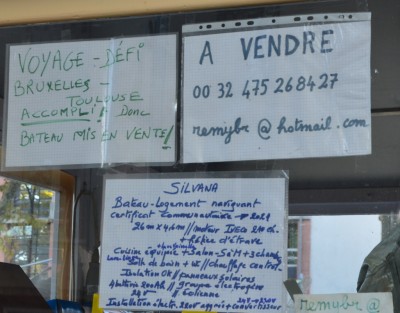 VOYAGE - DÉFI
BRUXELLES -
TOULOUSE
ACCOMPLI Donc
BATEAU MIS EN VENTE!
A VENDRE
00 32 475 268427
remybr @ hotmail.com
SILVANA
Bateau-Logement naviguant
certificat communautaire
26m x 4,4m // moteur IVECO 210 ch.
+ hélice d'étrave
Cuisine équipée + Salon-SàM + 3 chamb
Salle de bain + WC // chauffage central
Isolation OK // panneaux solaires
4 batteries 200Ah // groupe électrogène
// éolienne
24V → 230V
Installation électr. 220V agréée + convertisseur
remybr @